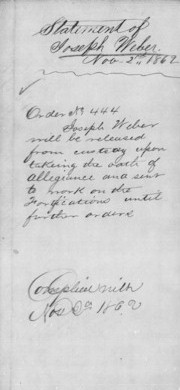 Statement of
Joseph Weber.
Nov. 2nd 1862
Order No 444
Joseph Weber
will be released
from custody upon
taking the oath of
allegiance and sent
to work on the
Forfications until
further orders
Complied with
Nov 2d 1862